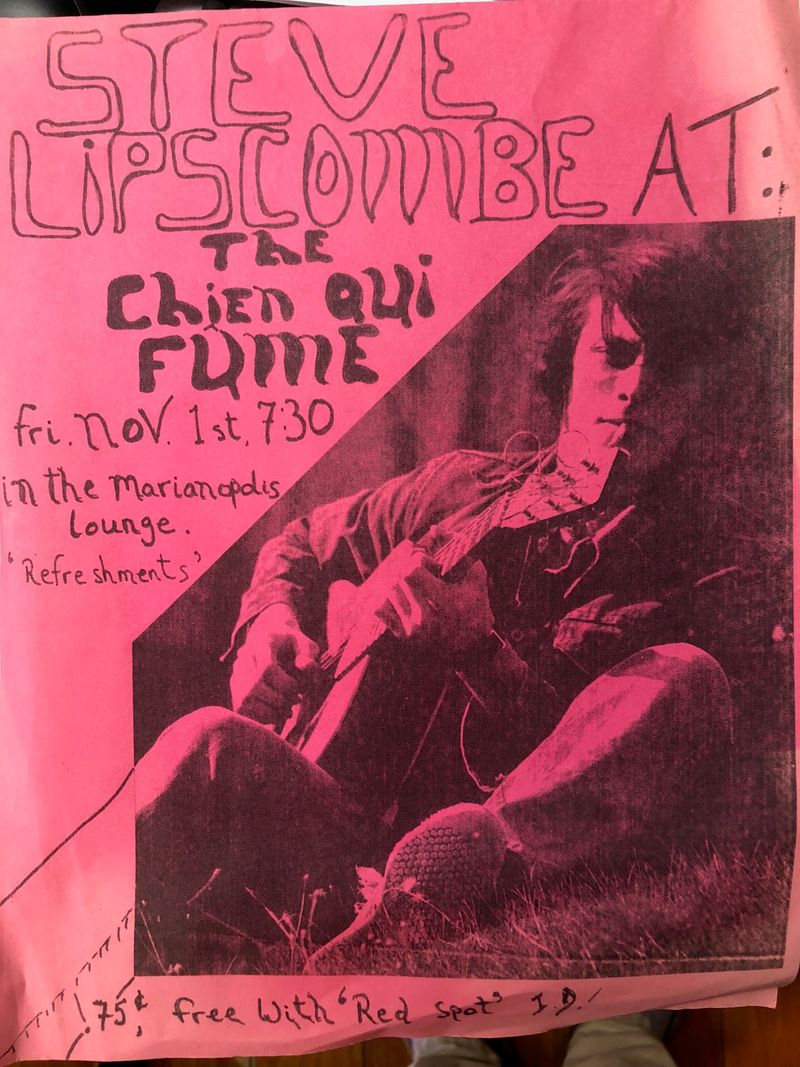 STEVE
LiPSCOMBE AT:
ThE
ChiEn QUi
FUME
fri. nov. 1st, 7:30
in the Marianopolis
Lounge.
'Refreshments'
75¢, free With 'Red Spot' I.D.!